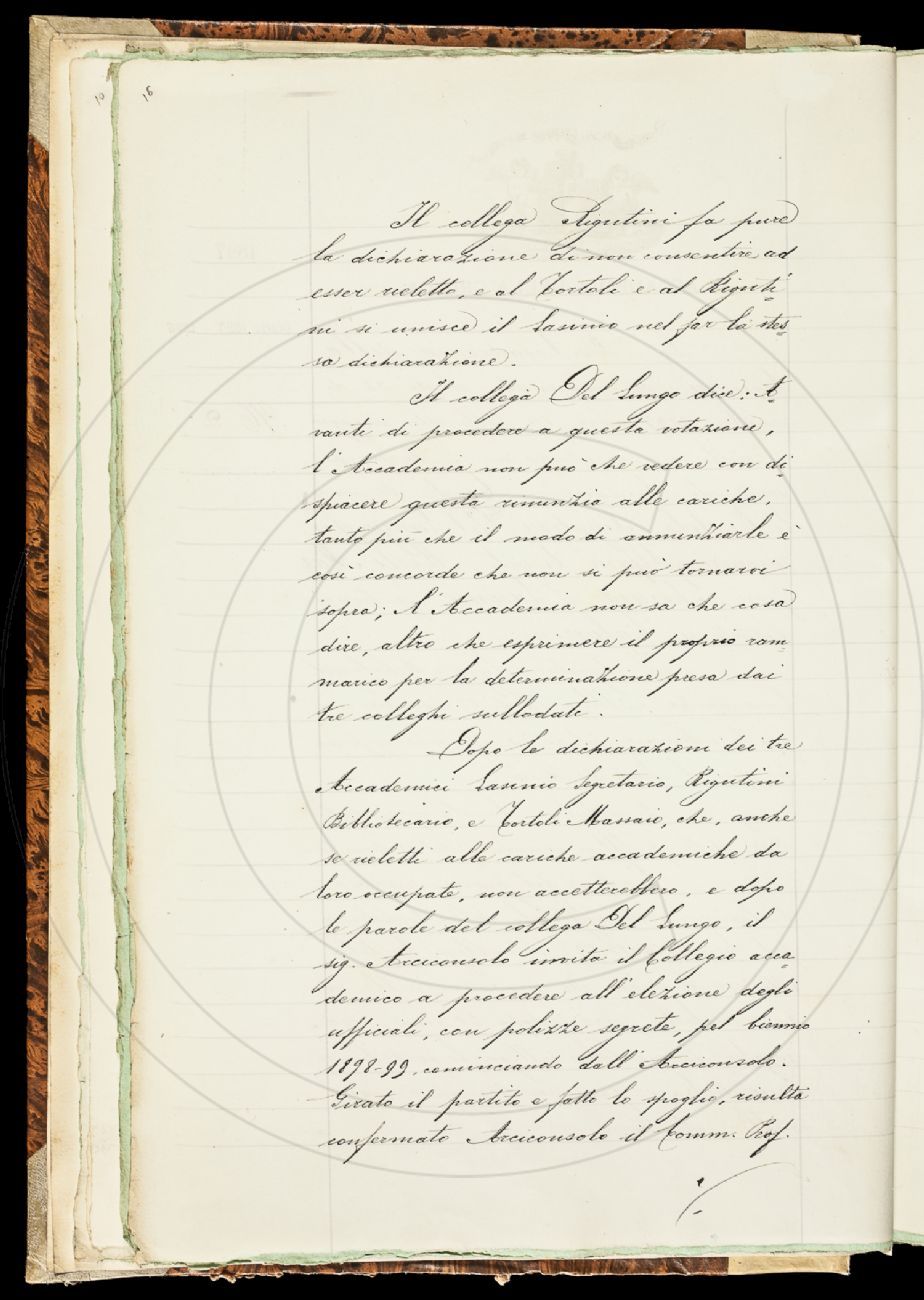 10
16
Il collega Rigutini fa pure
la dichiarazione di non consentire ad
esser rieletto, e al Tortoli e al Riguti=
ni si unisce il Lasinio nel far la stes=
sa dichiarazione.
Il collega Del Lungo dice: A=
vanti di procedere a questa votazione,
l'Accademia non può che vedere con di=
spiacere questa rinunzia alle cariche,
tanto più che il modo di annunziarle è
così concorde che non si può tornarvi
sopra; l'Accademia non sa che cosa
dire, altro che esprimere il proprio ram=
marico per la determinazione presa dai
tre colleghi sullodati.
Dopo le dichiarazioni dei tre
Accademici Lasinio Segretario, Rigutini
Bibliotecario, e Tortoli Massaio, che, anche
se rieletti alle cariche accademiche da
loro occupate, non accetterebbero, e dopo
le parole del collega Del Lungo, il
sig. Arciconsolo invita il Collegio acca=
demico a procedere all'elezione degli
ufficiali, con polizze segrete, pel biennio
1898-99, cominciando dall'Arciconsolo.
Girato il partito e fatto lo spoglio, risulta
confermato Arciconsolo il Comm. Prof.
./.